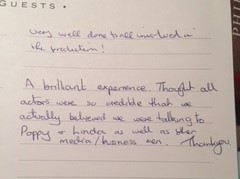 GUESTS •
Very well done to all involved in
the production!
A brilliant experience. Thought all
actors were so credible that we
actually believed we were talking to
Poppy & Linda as well as other
media/business men. Thankyou